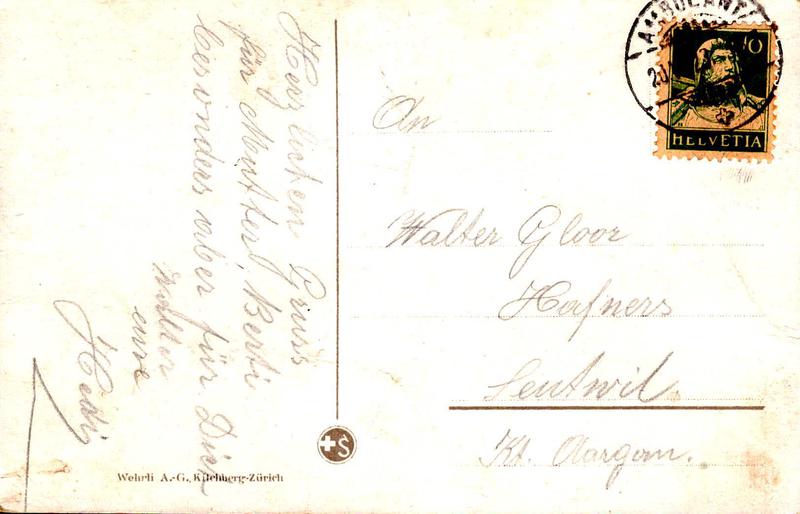 Herzlichen Gruss
für Mutter, Berti
besonders aber für Dich
Walter
eure
Hedi
An
Walter Gloor
Hafners
Seutwil.
Kt. Aargau.
AMBULANT
10
HELVETIA
+S
Wehrli A.-G., Kilchberg-Zürich